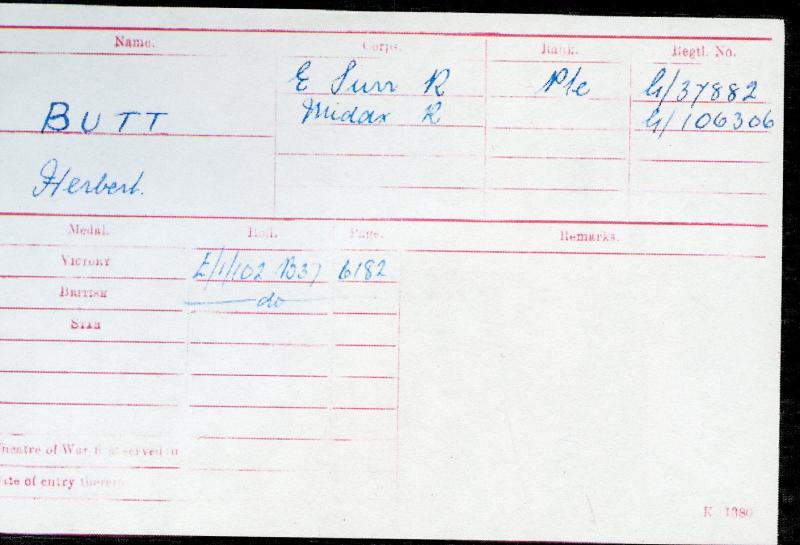 Name. Corps. Rank. Regtl. No.
E Surr R Pte G/37882
BUTT Middx R G/106306
Herbert.
Medal. Roll. Page. Remarks.
VICTORY E/1/102 B37 6182
BRITISH do
STAR
Theatre of War first served in
Date of entry therein
K 1380